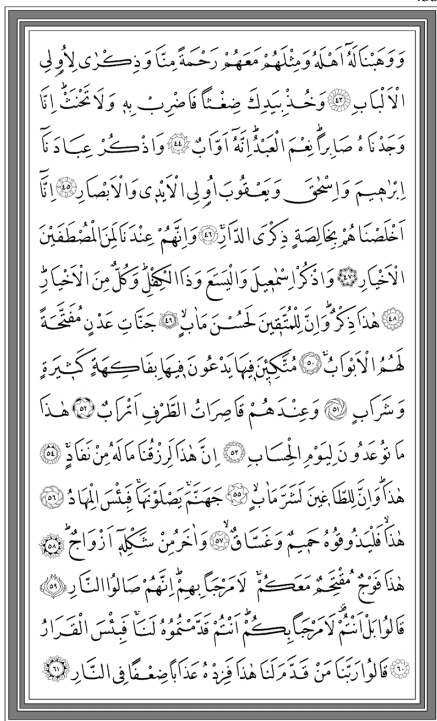 وَوَهَبْنَا لَهُٓ اَهْلَهُ وَمِثْلَهُمْ مَعَهُمْ رَحْمَةً مِنَّا وَذِكْرٰى لِاُو۬لِي
الْاَلْبَابِ ﴿٤٣﴾ وَخُذْ بِيَدِكَ ضِغْثًا فَاضْرِبْ بِه۪ وَلَا تَحْنَثْۜ اِنَّا
وَجَدْنَاهُ صَابِرًاۜ نِعْمَ الْعَبْدُۜ اِنَّهُٓ اَوَّابٌ ﴿٤٤﴾ وَاذْكُرْ عِبَادَنَٓا
اِبْرٰه۪يمَ وَاِسْحٰقَ وَيَعْقُوبَ اُو۬لِي الْاَيْد۪ي وَالْاَبْصَارِ ﴿٤٥﴾ اِنَّٓا
اَخْلَصْنَاهُمْ بِخَالِصَةٍ ذِكْرَى الدَّارِۚ ﴿٤٦﴾ وَاِنَّهُمْ عِنْدَنَا لَمِنَ الْمُصْطَفَيْنَ
الْاَخْيَارِ ﴿٤٧﴾ وَاذْكُرْ اِسْمٰع۪يلَ وَالْيَسَعَ وَذَا الْكِفْلِۜ وَكُلٌّ مِنَ الْاَخْيَارِۜ
﴿٤٨﴾ هٰذَا ذِكْرٌۜ وَاِنَّ لِلْمُتَّق۪ينَ لَحُسْنَ مَاٰبٍۙ ﴿٤٩﴾ جَنَّاتِ عَدْنٍ مُفَتَّحَةً
لَهُمُ الْاَبْوَابُۚ ﴿٥٠﴾ مُتَّكِـ۪ٔينَ ف۪يهَا يَدْعُونَ ف۪يهَا بِفَاكِهَةٍ كَث۪يرَةٍ
وَشَرَابٍ ﴿٥١﴾ وَعِنْدَهُمْ قَاصِرَاتُ الطَّرْفِ اَتْرَابٌ ﴿٥٢﴾ هٰذَا
مَا تُوعَدُونَ لِيَوْمِ الْحِسَابِ ﴿٥٣﴾ اِنَّ هٰذَا لَرِزْقُنَا مَا لَهُ مِنْ نَفَادٍۚ ﴿٥٤﴾
هٰذَاۜ وَاِنَّ لِلطَّاغ۪ينَ لَشَرَّ مَاٰبٍۙ ﴿٥٥﴾ جَهَنَّمَۚ يَصْلَوْنَهَاۚ فَبِئْسَ الْمِهَادُ ﴿٥٦﴾
هٰذَاۙ فَلْيَذُوقُوهُ حَم۪يمٌ وَغَسَّاقٌۙ ﴿٥٧﴾ وَاٰخَرُ مِنْ شَكْلِه۪ٓ اَزْوَاجٌۜ ﴿٥٨﴾
هٰذَا فَوْجٌ مُقْتَحِمٌ مَعَكُمْۚ لَا مَرْحَبًا بِهِمْۜ اِنَّهُمْ صَالُوا النَّارِ ﴿٥٩﴾
قَالُوا بَلْ اَنْتُمْ۠ لَا مَرْحَبًا بِكُمْۜ اَنْتُمْ قَدَّمْتُمُوهُ لَنَاۚ فَبِئْسَ الْقَرَارُ
﴿٦٠﴾ قَالُوا رَبَّنَا مَنْ قَدَّمَ لَنَا هٰذَا فَزِدْهُ عَذَابًا ضِعْفًا فِي النَّارِ ﴿٦١﴾